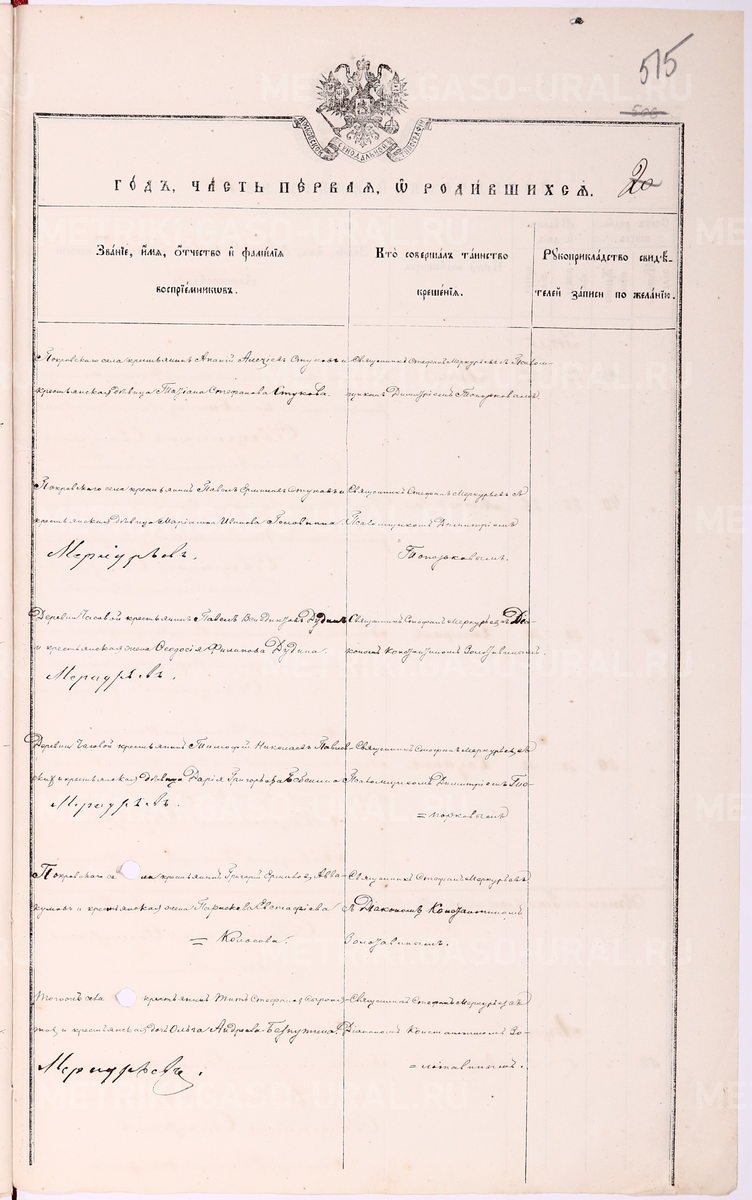 515
500
МОСКОВСКОЙ СѴНОДАЛЬНОЙ ТИПОГРАФІИ
ГО́ДЪ, ЧА́СТЬ ПЕ́РВАЯ, Ѡ РОДИ́ВШИХСЯ. 20
Зва́нїе, и́мя, о́тчество и фами́лїя воспрїе́мникѡвъ.
Кто̀ соверша́лъ та́инство креще́нїя.
Рꙋкоприкла́дство свидѣ́-
телей за́писи по жела́нїю.
Покровскаго села крестьянинъ Алексѣевъ Стуковъ и
крестьянская дѣвица Татіана Стефанова Стукова.
Священникъ Стефанъ Меркурьевъ съ Псалом-
щикомъ Димитріемъ Топорковымъ.
Покровскаго села крестьянинъ Павелъ Стуковъ и
крестьянская дѣвица Ивановна
Меркурьевъ.
Священникъ Стефанъ Меркурьевъ съ
Псаломщикомъ Димитріемъ
Топорковымъ.
Деревни Часовой крестьянинъ Павелъ Дудинъ
и крестьянская жена Ѳеодосія Филипова Дудина.
Меркурьевъ.
Священникъ Стефанъ Меркурьевъ съ Діа-
кономъ Константиномъ Золотавинымъ.
Деревни Часовой крестьянинъ Тимофей Николаевъ
и крестьянская дѣвица Дарія Григорьева
Меркурьевъ.
Священникъ Стефанъ Меркурьевъ съ
Псаломщикомъ Димитріемъ То-
=порковымъ
Покровскаго села крестьянинъ Григорій Авва-
кумовъ и крестьянская жена Параскева Евстафіева
= Колосова.
Священникъ Стефанъ Меркурьевъ
съ Діакономъ Константиномъ
Золотавинымъ.
Тогоже села крестьянинъ Титъ Стефановъ
и крестьянская дочь Ольга Андреева
Меркурьевъ.
Священникъ Стефанъ Меркурьевъ съ
Діакономъ Константиномъ Зо-
=лотавинымъ.